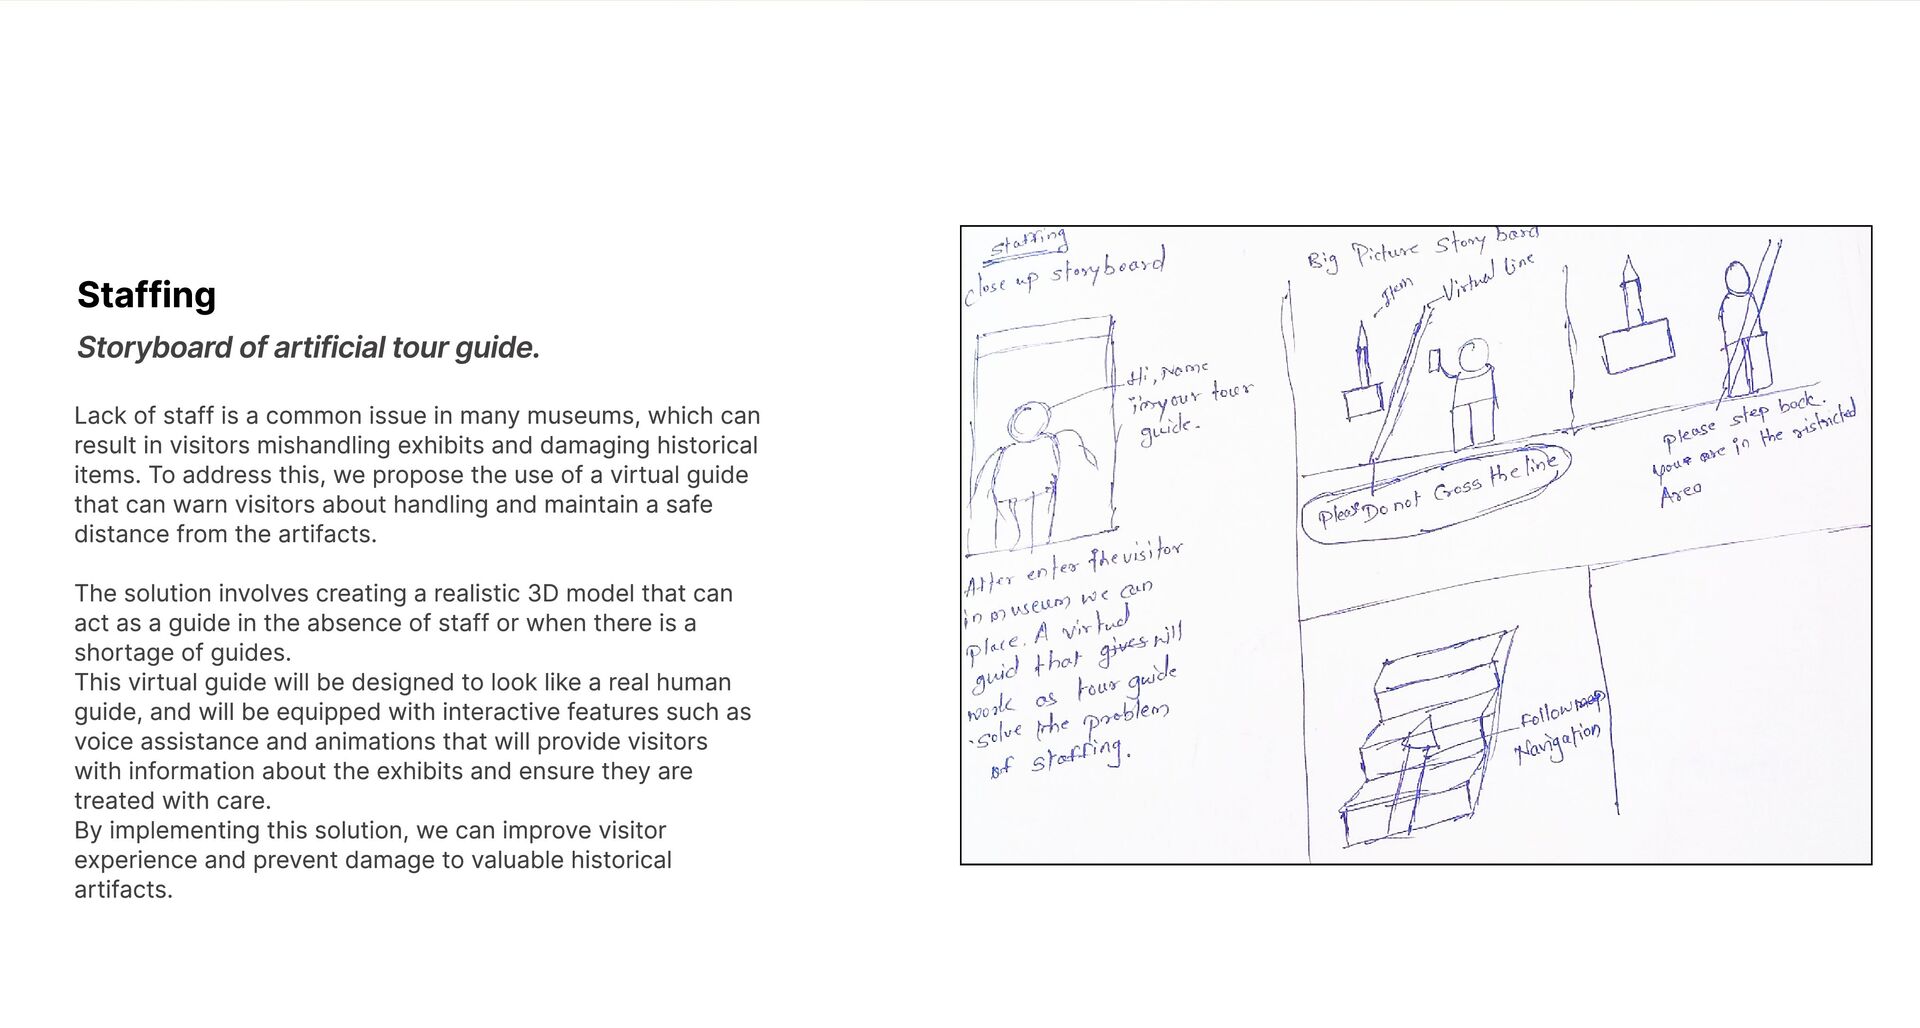 Staffing
Storyboard of artificial tour guide.
Lack of staff is a common issue in many museums, which can
result in visitors mishandling exhibits and damaging historical
items. To address this, we propose the use of a virtual guide
that can warn visitors about handling and maintain a safe
distance from the artifacts.
The solution involves creating a realistic 3D model that can
act as a guide in the absence of staff or when there is a
shortage of guides.
This virtual guide will be designed to look like a real human
guide, and will be equipped with interactive features such as
voice assistance and animations that will provide visitors
with information about the exhibits and ensure they are
treated with care.
By implementing this solution, we can improve visitor
experience and prevent damage to valuable historical
artifacts.
Staffing
Close up storyboard
Hi, Name
im your tour
guide.
After enter the visitor
in museum we can
place. A virtual
guid that gives will
work as tour guide
solve the problem
of staffing.
Big Picture Story board
Item
Virtual line
Please Do not Cross the line
please step back.
your are in the ristricted
Area
Follow map
Navigation